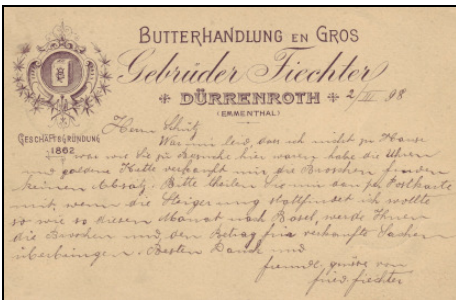 BUTTERHANDLUNG EN GROS
Gebrüder Fiechter
DÜRRENROTH
(EMMENTHAL)
2/III 98
GESCHÄFTSGRÜNDUNG
1862
Herrn Schütz
War mir leid, dass ich nicht zu Hause
war wie Sie zu Besuche hier waren habe die Uhren
und goldene Kette verkauft nur die Broschen finden
keinen Absatz. Bitte theilen Sie mir an per Postkarte
mit, wenn die Steigerung stattfindet ich wollte
so wie so diesen Monat nach Basel, werde Ihnen
die Broschen und den Betrag für verkaufte Sachen
überbringen. Besten Dank und
freundl. grüsse von
fried. fiechter